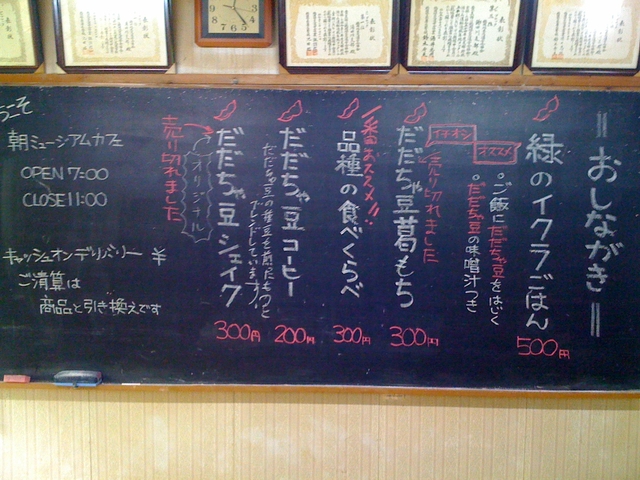 おしながき
緑のイクラごはん
500円
オススメ
ご飯にだだちゃ豆をはじく
だだちゃ豆の味噌汁つき
イチオシ
だだちゃ豆葛もち
売り切れました
300円
一番おススメ!!
品種の食べくらべ
300円
だだちゃ豆コーヒー
だだちゃ豆の種豆を煎たものと
ブレンドしています!
200円
だだちゃ豆シェイク
オリジナル
売り切れました
300円
うこそ
朝ミュージアムカフェ
OPEN 7:00
CLOSE 11:00
キャッシュオンデリバリー ¥
ご清算は
商品と引き換えです
表彰状
表彰状
表彰状